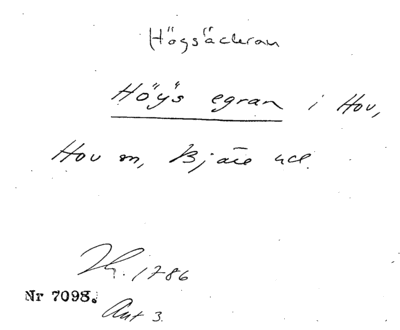 Högsäckran
Höÿs egran i Hov,
Hov sn, Bjäre hd.
1786
Nr 7098.
Akt 3.